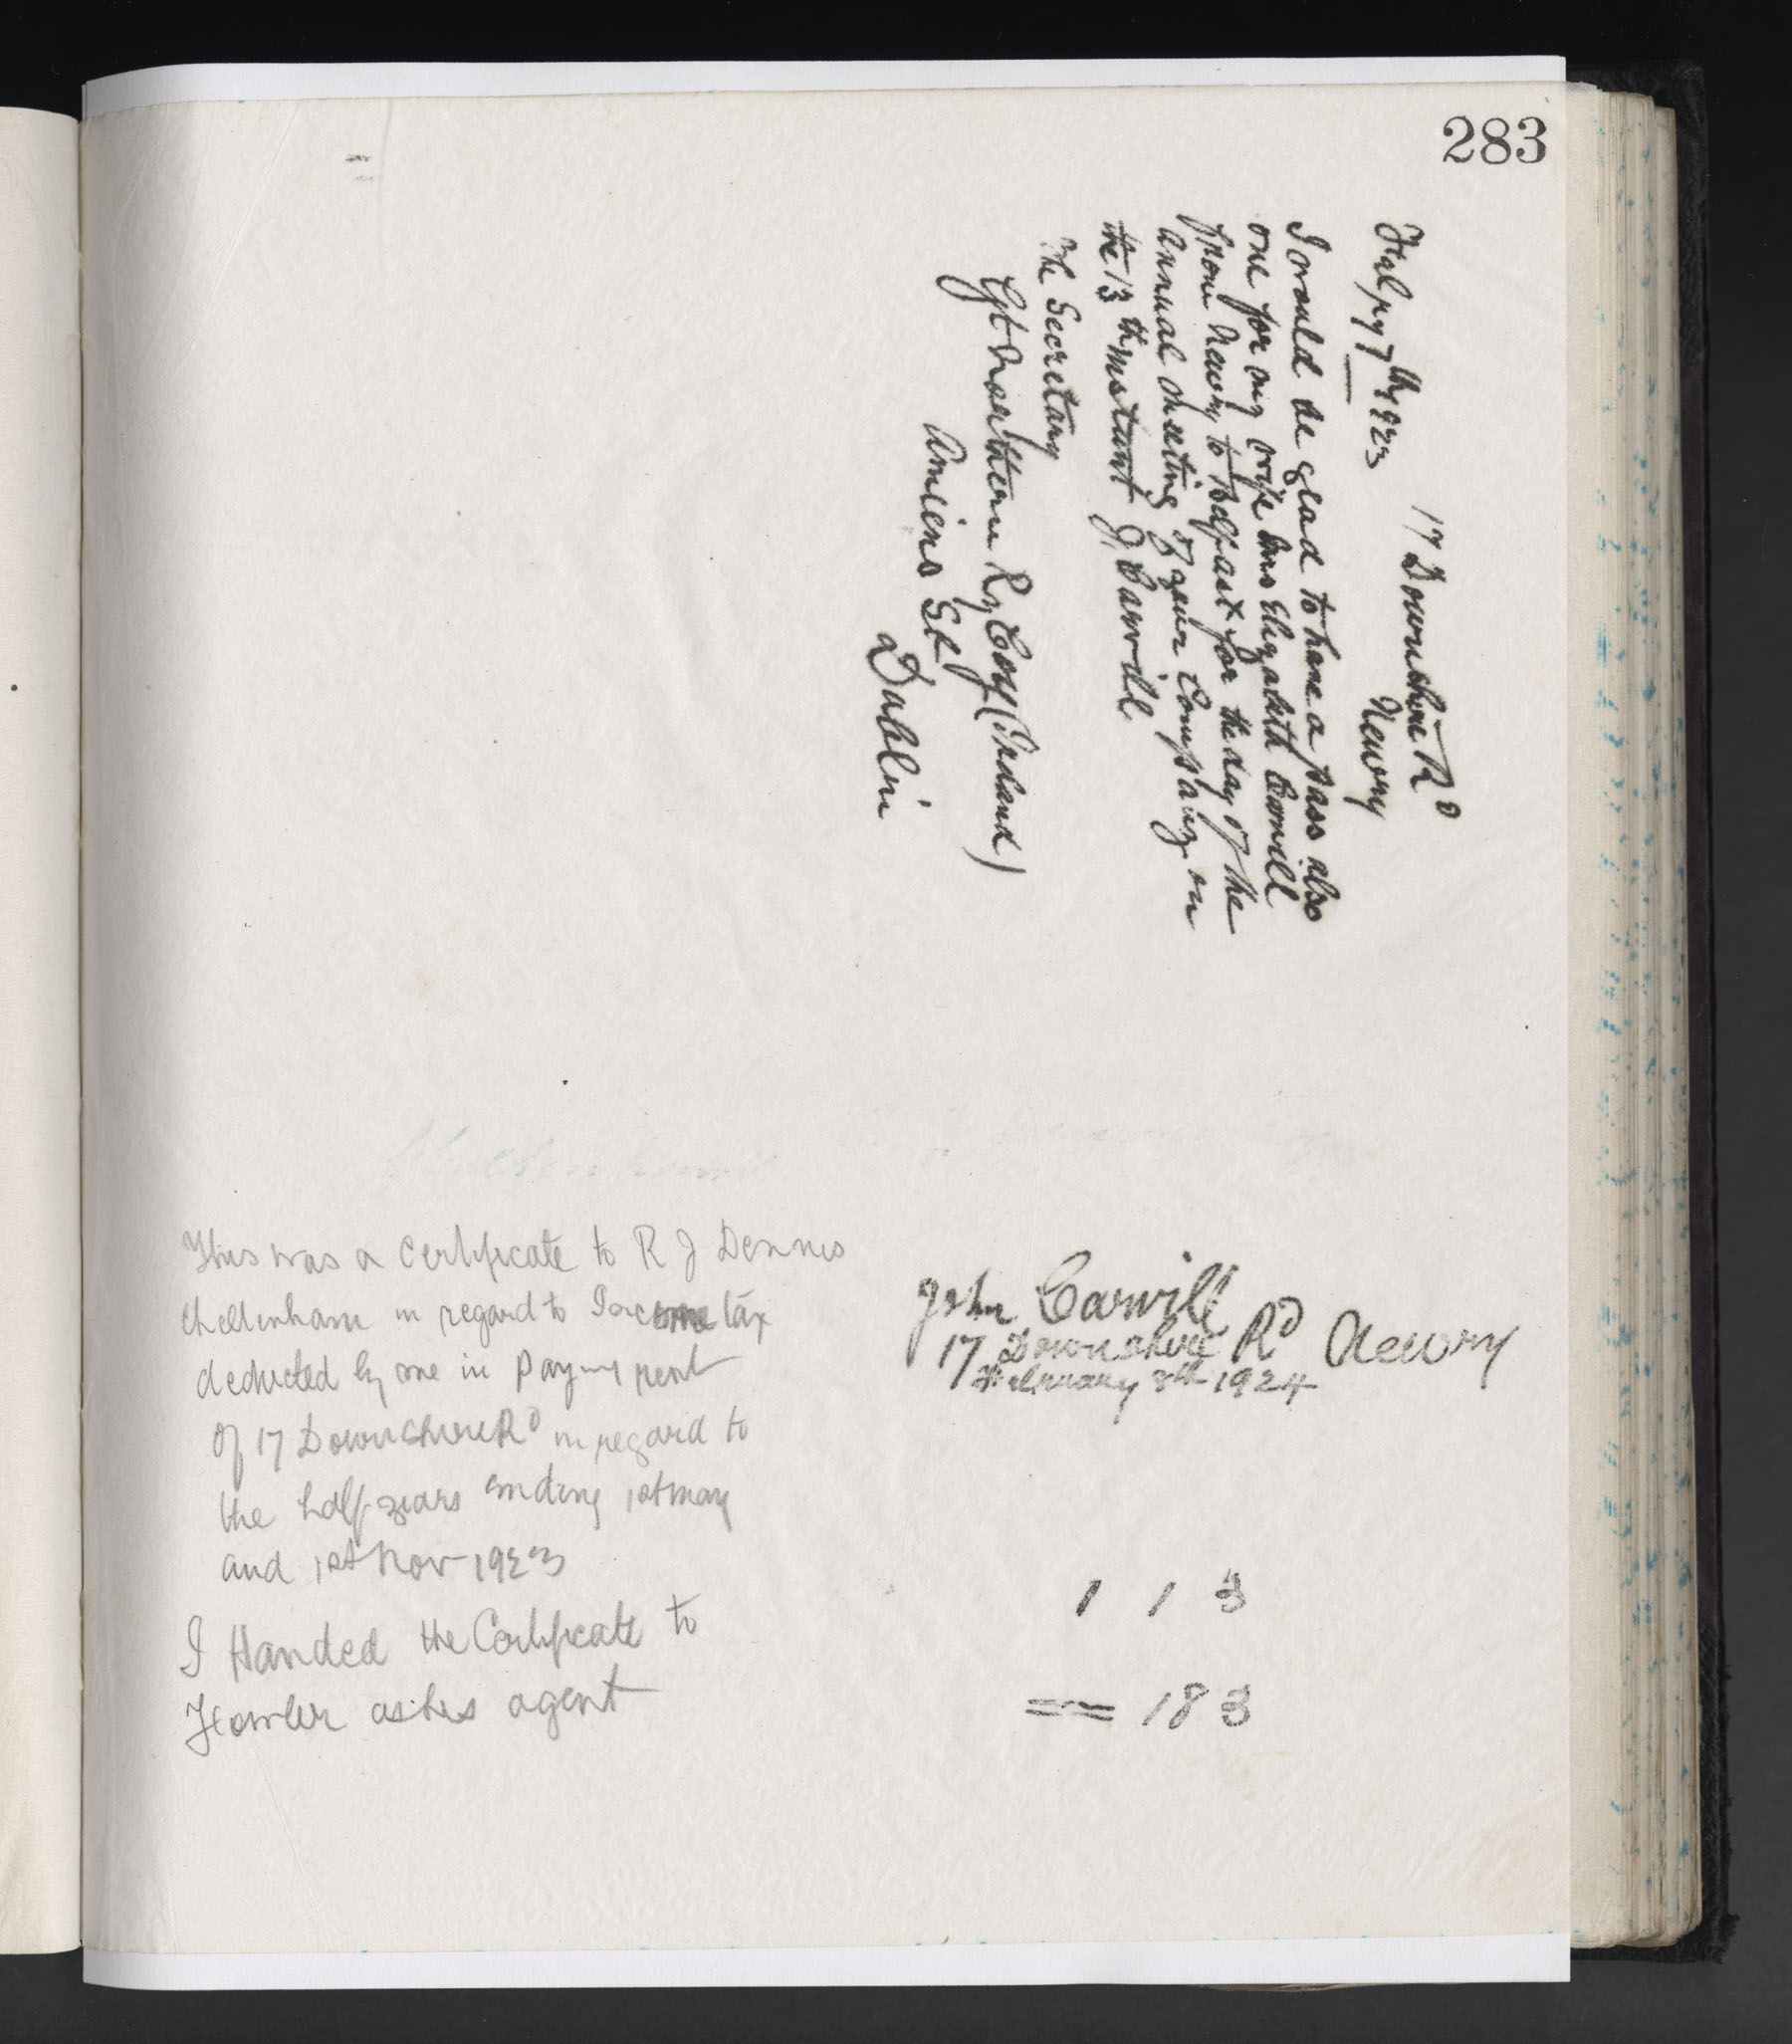 283
17 Downshire Rd
Newry
Feby 7th 1923
I would be glad to have a pass also
one for my wife Mrs Elizabeth Carvill
from Newry to Belfast for the day of the
Annual Meeting of your Company on
the 13th instant J. Carvill
The Secretary
Gt Northern Ry Coy (Ireland)
Amiens St
Dublin
This was a Certificate to R J Dennis
Cheltenham in regard to Income tax
deducted by me in paying rent
of 17 Downshire Rd in regard to
the half years ending 1st May
and 1st Nov 1923
I Handed the Certificate to
Fowler as his agent
John Carvill
17 Downshire Rd Newry
February 8th 1924
1 1 3
== 18 3